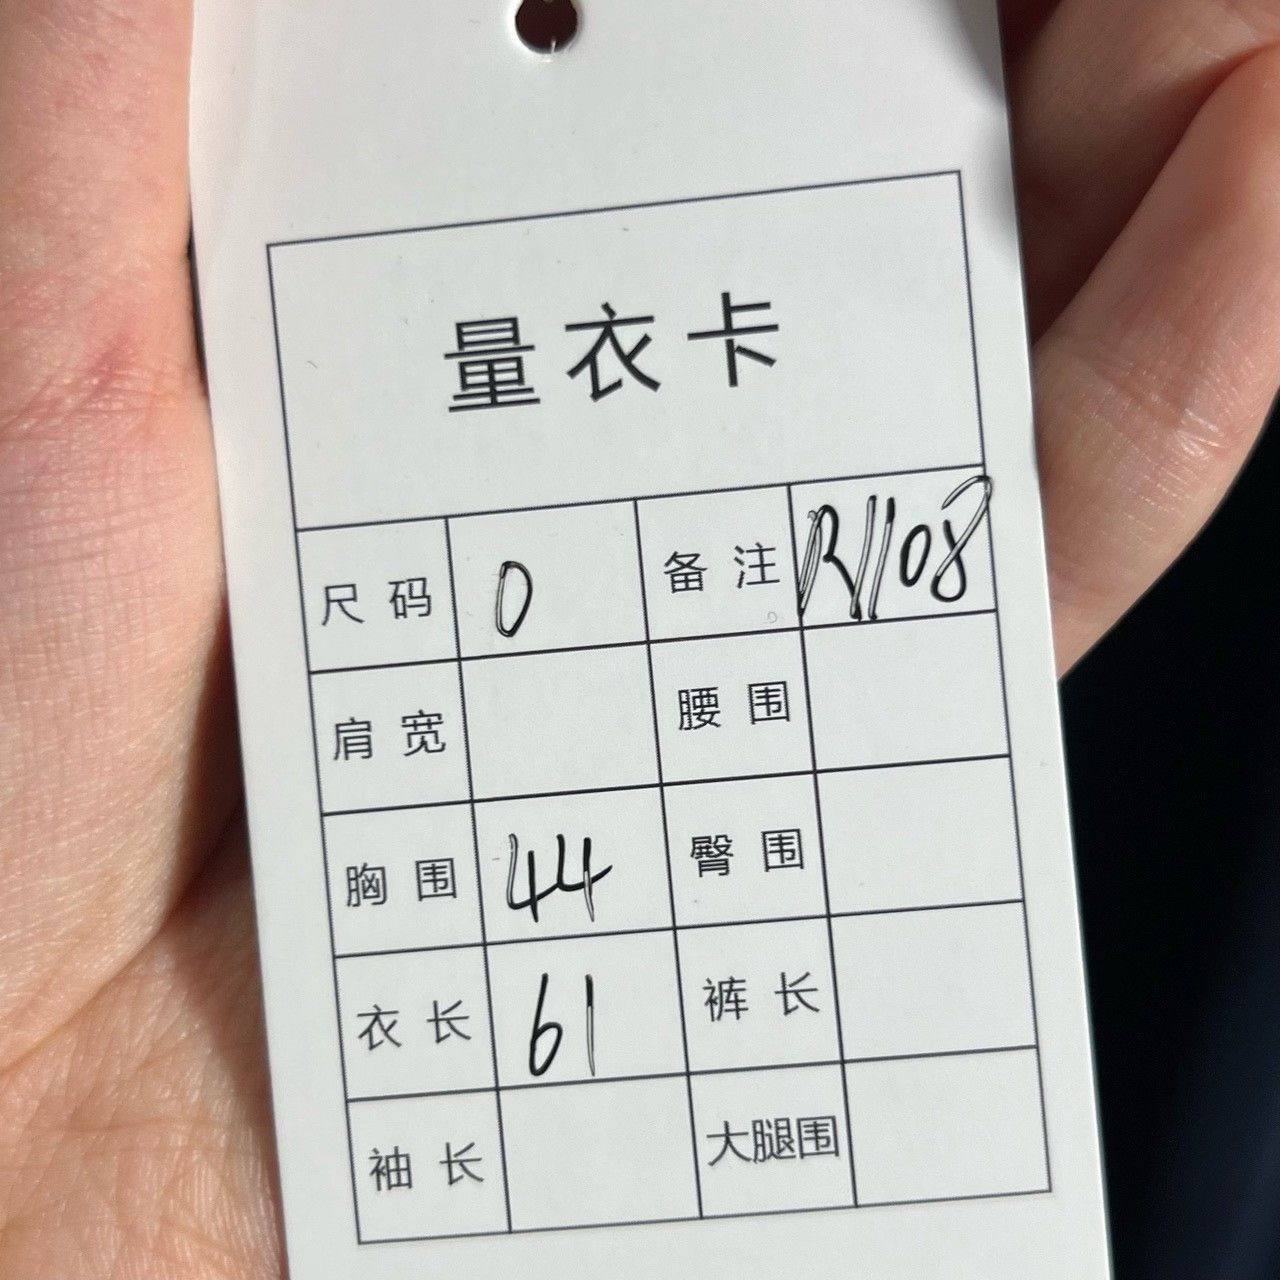 量衣卡
尺码 0 备注 R1108
肩宽 腰围
胸围 44 臀围
衣长 61 裤长
袖长 大腿围